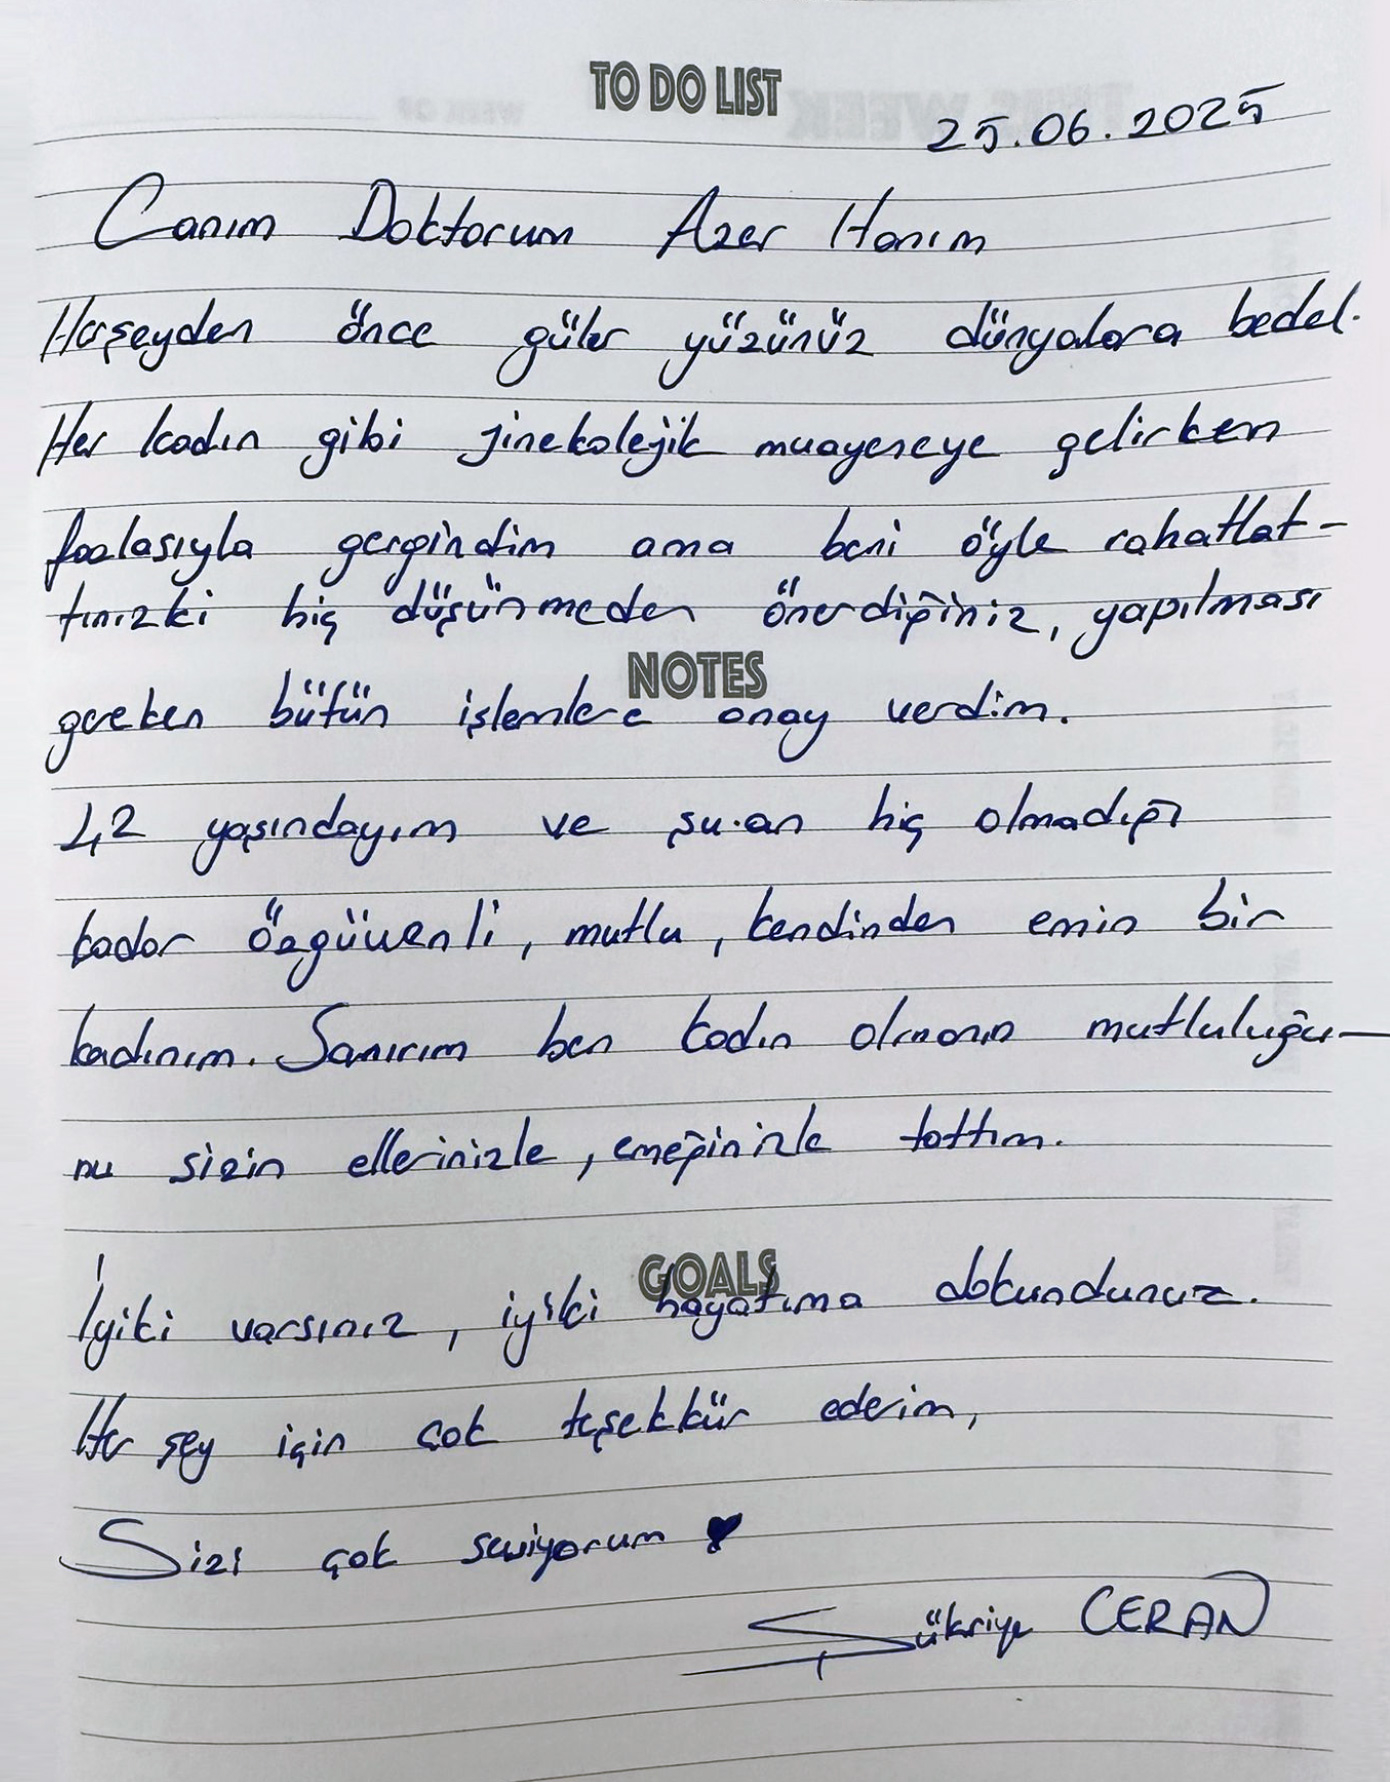 TO DO LIST
25.06.2025
Canım Doktorum Azer Hanım
Herşeyden önce güler yüzünüz dünyalara bedel.
Her kadın gibi jinekolejik muayeneye gelirken
fazlasıyla gergindim ama beni öyle rahatlat-
tınızki hiç düşünmeden önerdiğiniz, yapılması
NOTES
gereken bütün işlemlere onay verdim.
42 yaşındayım ve şu.an hiç olmadığı
kadar özgüvenli, mutlu, kendinden emin bir
kadınım. Sanırım ben kadın olmanın mutluluğu-
nu sizin ellerinizle, emeğinizle tattım.
GOALS
İyiki varsınız, iyiki hayatıma dokundunuz.
Her şey için çok teşekkür ederim,
Sizi çok seviyorum ♥
Şükriye CERAN